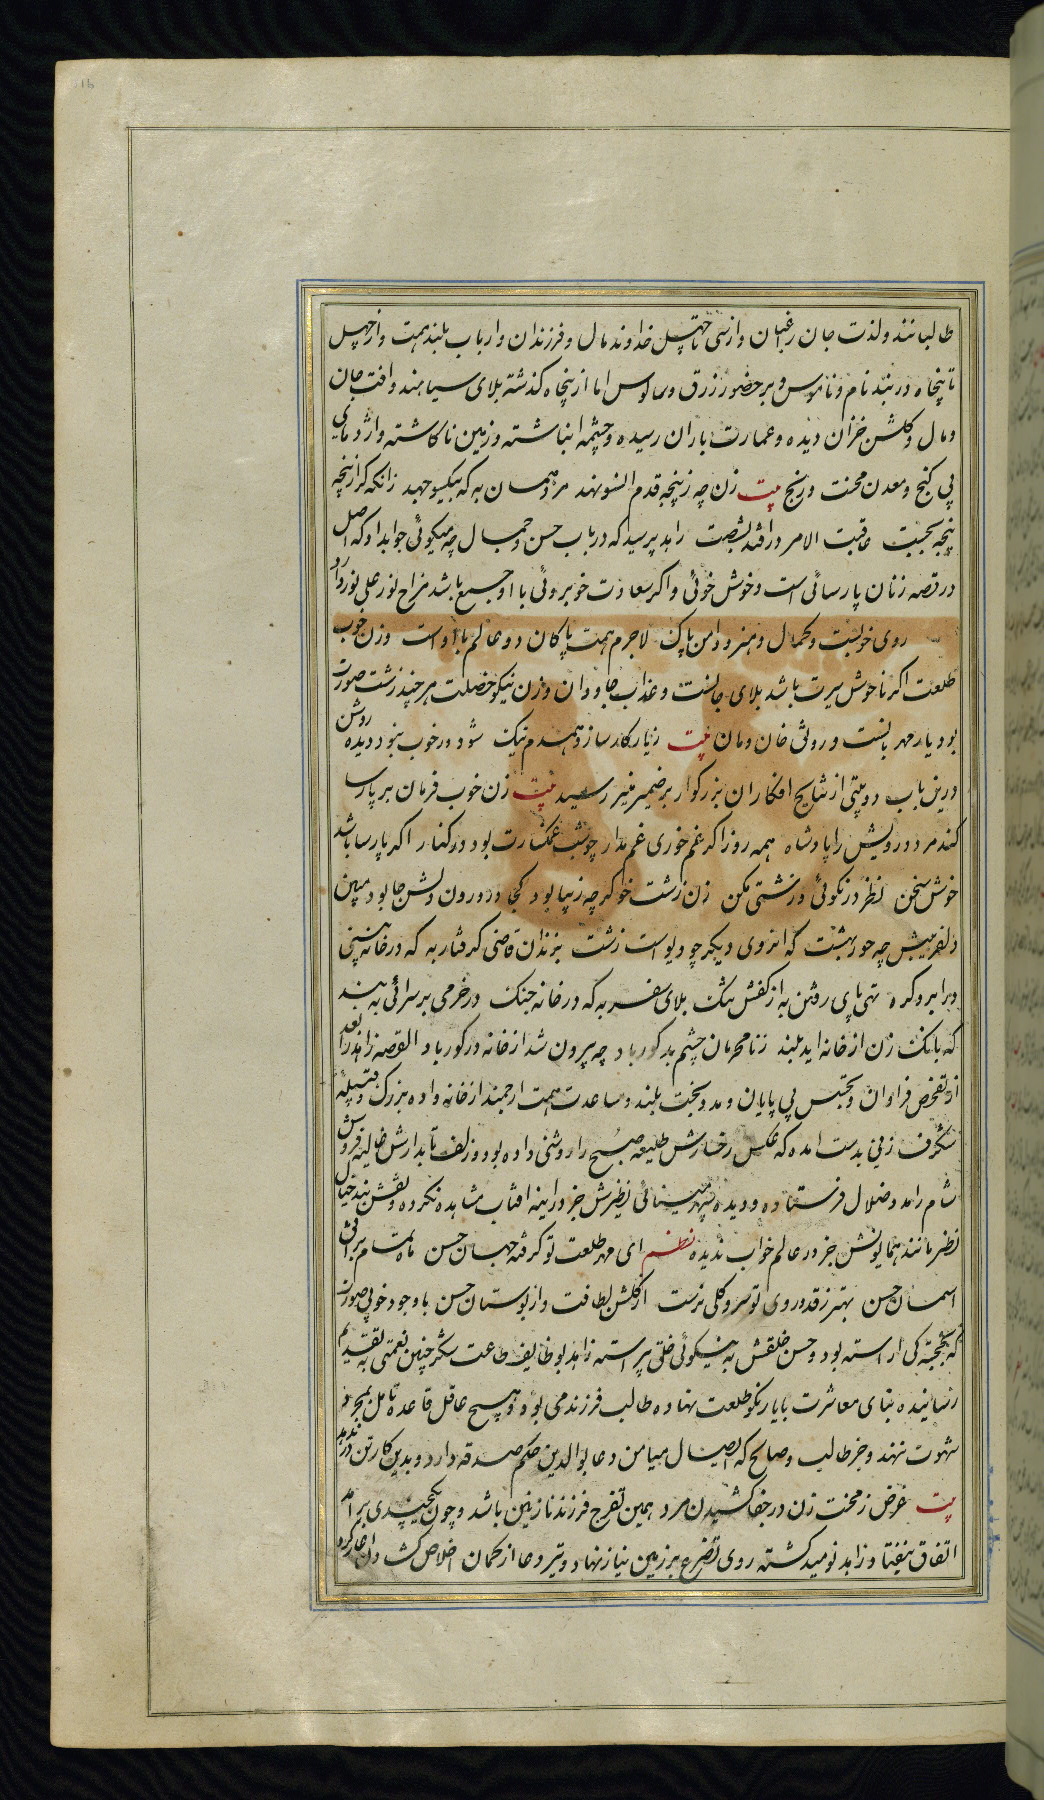 طالبانند ولذت جان راغبان واز سی تا چهل خداوند مال وفرزندان وارباب بلند همت واز چهل
تا پنجاه در بند نام وناموس وبر حضور زرق وسالوس اما از پنجاه گذشته بلای سیاهند وآفت جان
ومال وگلشن خزان دیده وعمارت باران رسیده وچشمه انباشته وزمین ناکاشته واژدهای
بی گنج ومعدن محنت ورنج بیت زن چه ز پنجه قدم آنسو نهد مرد همان به که بیکسو جهد زانکه گر از پنجه
پنجه بجست عاقبت الامر در افتد بشصت زاهد پرسید که در باب حسن وجمال چه میگوئی جواب داد که اصل
در قصه زنان پارسائی است وخوش خوئی واگر سعادت خوبروئی با او جمع باشد مزاج نور علی نور دارد
روی خوبست وکمال وهنر ودامن پاک لاجرم همت پاکان دو عالم با اوست وزن خوب
طلعت اگر ناخوش سیرت باشد بلای جانست وعذاب جاودان وزن نیکو خصلت هر چند زشت صورت
بود یار مهربانست ورونق خان ومان بیت ز یار کارساز وهمدم نیک شود ور خوب نبود دیده روشن
درین باب دو بیتی از نتایج افکار آن بزرگوار بر ضمیر منیر رسید بیت زن خوب فرمان بر پارسا
کند مرد درویش را پادشاه همه روز اگر غم خوری غم مدار چو شب غمگسارت بود در کنار اگر پارسا باشد
خوش سخن نظر در نکوئی وزشتی مکن زن زشت خو گر چه زیبا بود کجا در درون دلش جا بود مبین
دلفریبش چه حور بهشت که از روی دیگر چو دیو است زشت بزندان قاضی گرفتار به که در خانه بینی
در ابرو گره تهی پای رفتن به از کفش تنگ بلای سفر به که در خانه جنگ در خرمی بر سرائی به بند
که بانگ زن از خانه آید بلند ز نامحرمان چشم بد کور باد چه بیرون شد از خانه در گور باد القصه زاهد را بعد
از تفحص فراوان وتجسس بی پایان ومدد بخت بلند ومساعدت همت ارجمند از خانواده بزرگ وقبیله
شگرف زنی بدست آمده که عکس رخسارش طلیعه صبح را روشنی داده بود وزلف تابدارش غالیه فروش
شام را مدد ضلال فرستاده ودیده سپهر مینائی نظیرش جز در آینه آفتاب مشاهده نکرده ونقش بند خیال
نظر مانند همایونش جز در عالم خواب ندیده نظم ای مهر طلعت تو گرفته جهان حسن ماه تمام بر افق
آسمان حسن بهتر ز قد وروی تو سرو وگلی نرست از گلشن لطافت واز بوستان حسن با وجود خوبی صورت
که بخجستگی آراسته بود وحسن خلقش به نیکوئی خلق پیراسته زاهد بوظایف طاعت شکر چنین نعمتی به تقدیم
رسانیده بنای معاشرت با یار نکو طلعت نهاده طالب فرزند می بود وهیچ عاقل قاعده تامل بمجرد
شهوت ننهد وجز طالب وصالح که ایصال میامن دعا بوالدین حکم صدقه دارد وبدین کار تن در ندهد
بیت غرض ز محنت زن در جفا کشیدن مرد همین تفرج فرزند نازنین باشد وچون یکچندی بر آمد
اتفاق نیفتاد وزاهد نومید گشته روی تضرع بر زمین نیاز نهاد وتیر دعا از کمان اخلاص گشاد